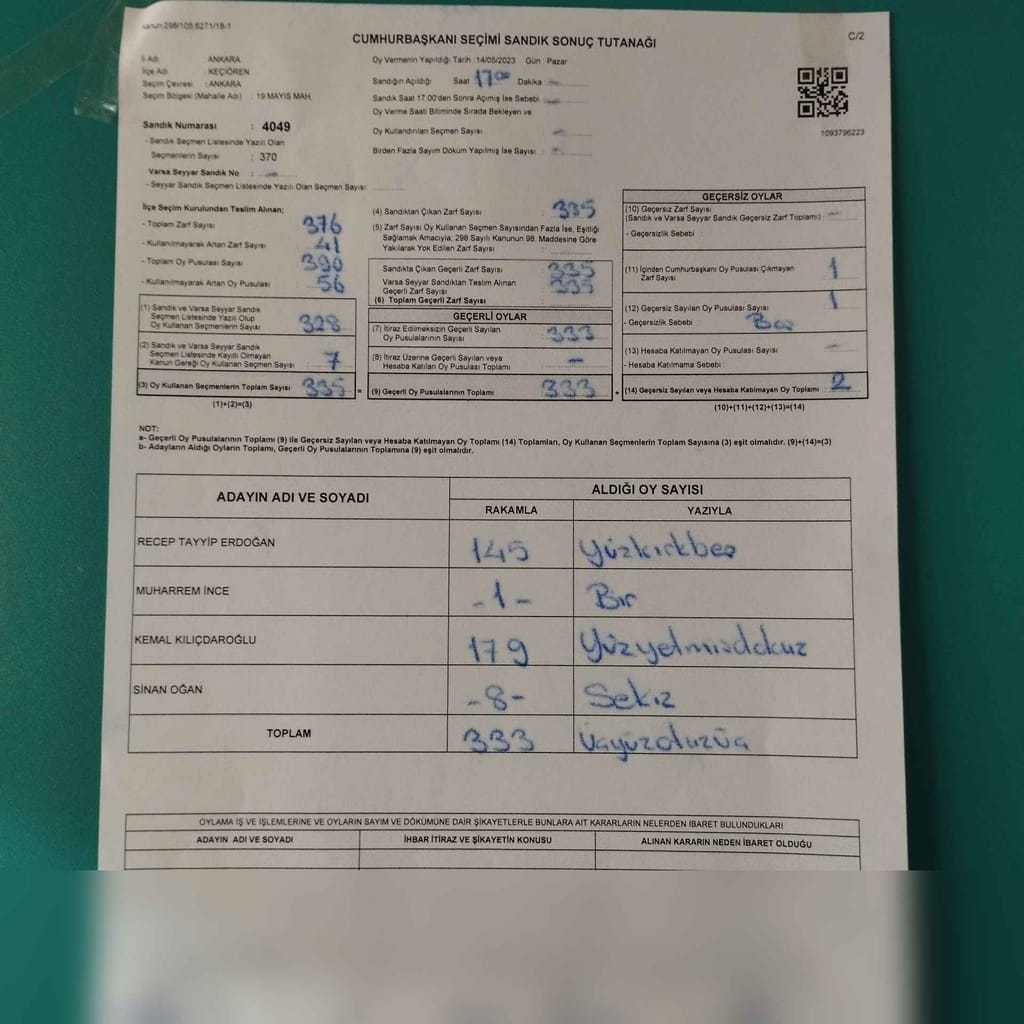 kanun:298/105,6271/18-1
C/2
CUMHURBAŞKANI SEÇİMİ SANDIK SONUÇ TUTANAĞI
İl Adı ANKARA
İlçe Adı KEÇİÖREN
Seçim Çevresi : ANKARA
Seçim Bölgesi (Mahalle Adı) : 19 MAYIS MAH.
Oy Vermenin Yapıldığı Tarih 14/05/2023 Gün Pazar
Sandığın Açıldığı Saat 17:00 Dakika
Sandık Saat 17.00'den Sonra Açılmış İse Sebebi
Oy Verme Saati Bitiminde Sırada Bekleyen ve
Oy Kullandırılan Seçmen Sayısı :
Birden Fazla Sayım Döküm Yapılmış İse Sayısı :
1093796223
Sandık Numarası : 4049
- Sandık Seçmen Listesinde Yazılı Olan
Seçmenlerin Sayısı : 370
Varsa Seyyar Sandık No :
- Seyyar Sandık Seçmen Listesinde Yazılı Olan Seçmen Sayısı
İlçe Seçim Kurulundan Teslim Alınan;
- Toplam Zarf Sayısı : 376
- Kullanılmayarak Artan Zarf Sayısı : 41
- Toplam Oy Pusulası Sayısı : 390
- Kullanılmayarak Artan Oy Pusulası : 56
(1) Sandık ve Varsa Seyyar Sandık
Seçmen Listesinde Yazılı Olup
Oy Kullanan Seçmenlerin Sayısı : 328
(2) Sandık ve Varsa Seyyar Sandık
Seçmen Listesinde Kayıtlı Olmayan
Kanun Gereği Oy Kullanan Seçmen Sayısı : 7
(3) Oy Kullanan Seçmenlerin Toplam Sayısı : 335 =
(1)+(2)=(3)
(4) Sandıktan Çıkan Zarf Sayısı : 335
(5) Zarf Sayısı Oy Kullanan Seçmen Sayısından Fazla İse, Eşitliği
Sağlamak Amacıyla; 298 Sayılı Kanunun 98. Maddesine Göre
Yakılarak Yok Edilen Zarf Sayısı :
Sandıkta Çıkan Geçerli Zarf Sayısı : 335
Varsa Seyyar Sandıktan Teslim Alınan
Geçerli Zarf Sayısı
(6) Toplam Geçerli Zarf Sayısı : 335
GEÇERLİ OYLAR
(7) İtiraz Edilmeksizin Geçerli Sayılan
Oy Pusulalarının Sayısı : 333
(8) İtiraz Üzerine Geçerli Sayılan veya
Hesaba Katılan Oy Pusulası Toplamı : -
(9) Geçerli Oy Pusulalarının Toplamı : 333 +
GEÇERSİZ OYLAR
(10) Geçersiz Zarf Sayısı
(Sandık ve Varsa Seyyar Sandık Geçersiz Zarf Toplamı) : -
- Geçersizlik Sebebi :
(11) İçinden Cumhurbaşkanı Oy Pusulası Çıkmayan
Zarf Sayısı : 1
(12) Geçersiz Sayılan Oy Pusulası Sayısı : 1
- Geçersizlik Sebebi : Boş
(13) Hesaba Katılmayan Oy Pusulası Sayısı : -
- Hesaba Katılmama Sebebi :
(14) Geçersiz Sayılan veya Hesaba Katılmayan Oy Toplamı : 2
(10)+(11)+(12)+(13)=(14)
NOT:
a- Geçerli Oy Pusulalarının Toplamı (9) ile Geçersiz Sayılan veya Hesaba Katılmayan Oy Toplamı (14) Toplamları, Oy Kullanan Seçmenlerin Toplam Sayısına (3) eşit olmalıdır. (9)+(14)=(3)
b- Adayların Aldığı Oyların Toplamı, Geçerli Oy Pusulalarının Toplamına (9) eşit olmalıdır.
ADAYIN ADI VE SOYADI ALDIĞI OY SAYISI
RAKAMLA YAZIYLA
RECEP TAYYİP ERDOĞAN 145 Yüzkırkbeş
MUHARREM İNCE -1- Bir
KEMAL KILIÇDAROĞLU 179 Yüzyetmişdokuz
SİNAN OĞAN -8- Sekiz
TOPLAM 333 Üçyüzotuzüç
OYLAMA İŞ VE İŞLEMLERİNE VE OYLARIN SAYIM VE DÖKÜMÜNE DAİR ŞİKAYETLERLE BUNLARA AİT KARARLARIN NELERDEN İBARET BULUNDUKLARI
ADAYIN ADI VE SOYADI İHBAR İTİRAZ VE ŞİKAYETİN KONUSU ALINAN KARARIN NEDEN İBARET OLDUĞU